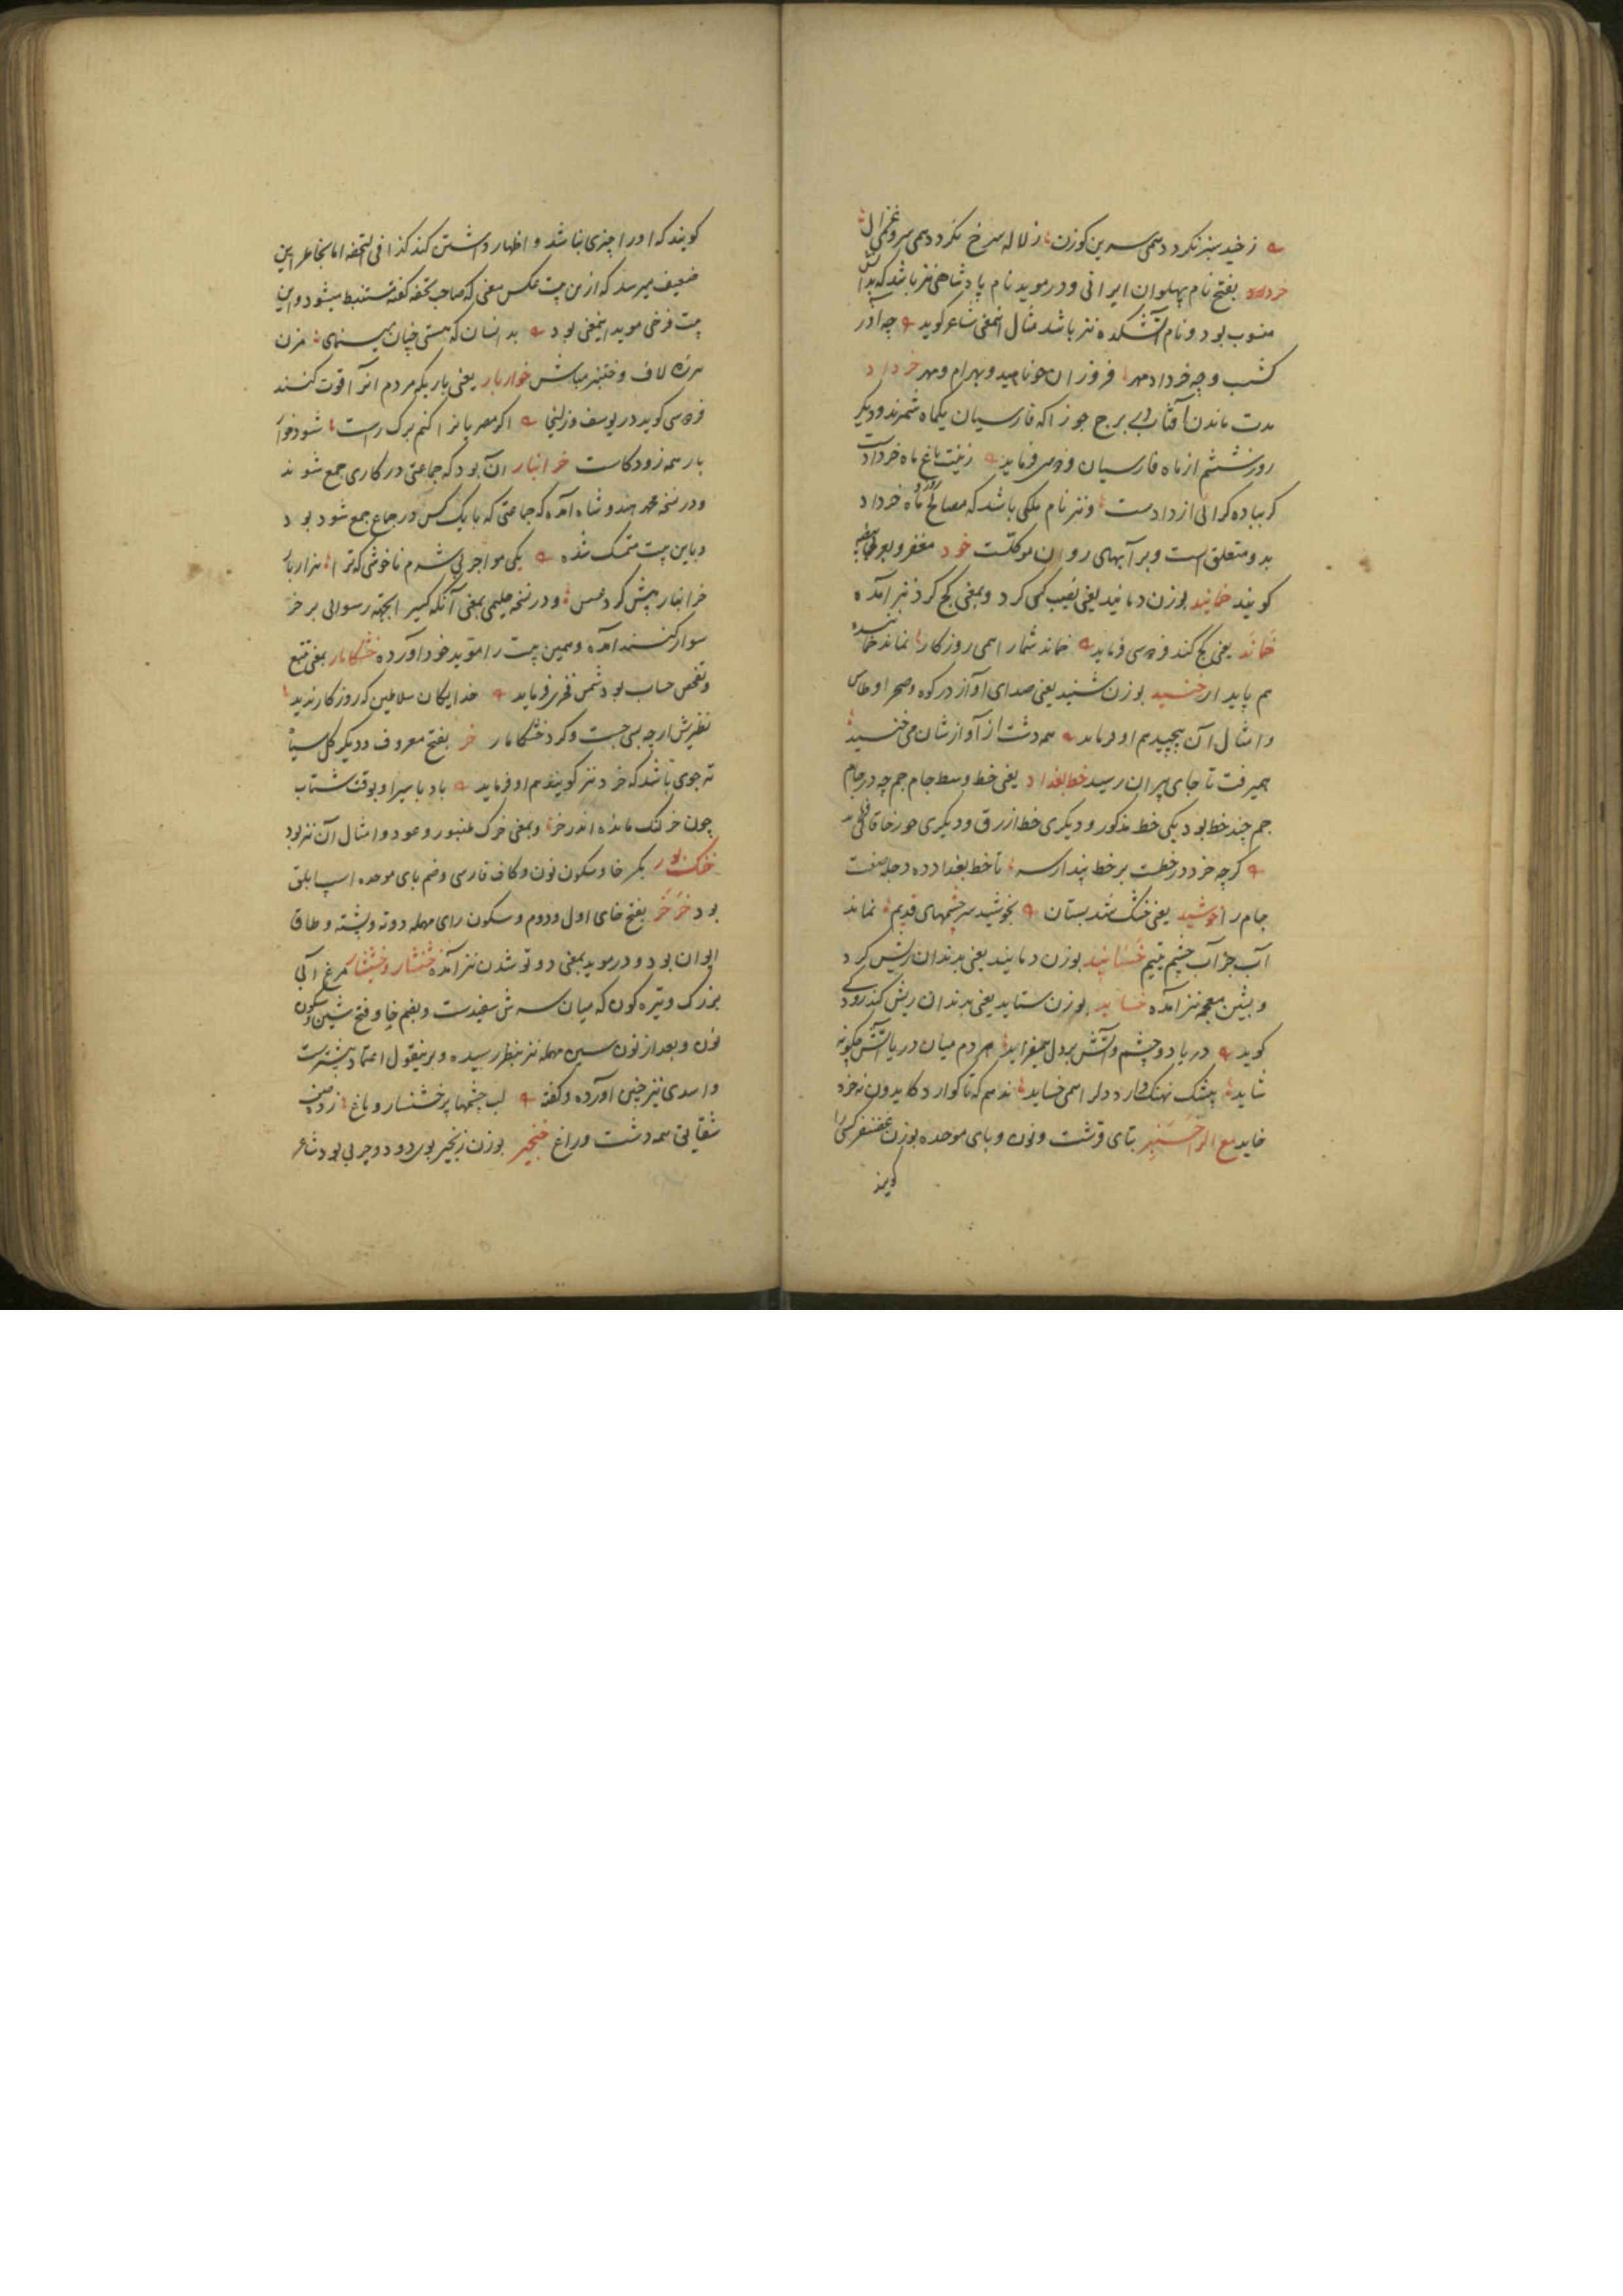 ز خید سبز نکردد همی سرین کوزن ز لاله سرخ نکردد همی سروی غزال
خرداد بفتح نام پهلوان ایرانی و در موید نام پادشاهی نیز باشد که بدا
منسوب بود و نام آتشکده نیز باشد مثال اینمعنی شاعر کوید چه آذر
کشسب و چه خرداد مهر فروزان چو ناهید و بهرام و مهر خرداد
مدت ماندن آفتاب در برج جوزا که فارسیان یکماه شمرند و دیکر
روز ششم از ماه فارسیان فردوسی فرماید زینت باغ ماه خردادست
کر بباده کرائی از دادست و نیز نام ملکی باشد که مصالح روز و ماه خرداد
بدو متعلق است و بر آبهای روان موکلست خود مغفر و بعربی بیضه
کویند خمانید بوزن دمانید یعنی نصیب کمی کرد و بمعنی کج کرد نیز آمده
خماند یعنی کج کند فردوسی فرماید خماند شما را همی روزکار نماند خماننده
هم پایدار خنید بوزن شنید یعنی صدای آواز در کوه و صحرا و طاس
و امثال آن پیچید هم او فرماید همه دشت از آوازشان می خنید
همیرفت تا جای پیران رسید خط بغداد یعنی خط وسط جام جم چه در جام
جم چند خط بود یکی خط مذکور و دیکری خط ازرق و دیکری جور خاقانی
کرچه خرد در خطست بر خط پندار سر تا خط بغداد ده دجله صفت
جام را خوشید یعنی خشک شد بستان بخوشید سرچشمهای قدیم نماند
آب جز آب چشم یتیم خسانید بوزن دمانید یعنی بدندان ریش کرد
و بشین معجمه نیز آمده خساید بوزن ستاید یعنی بدندان ریش کند رودکی
کوید دریا دو چشم و آتش بر دل همیفزاید مردم میان دریا و آتش چکونه
شاید نیشک نهنک دارد دل را همی خساید ندهم که ناکوارد کاید دون نه خرد
خاید مع الرا خنبر بتای قرشت و نون و بای موحده بوزن غضنفر کسی را
کویند
کویند که او را چیزی نباشد و اظهار داشتن کند کذا فی التحفه اما بخاطر این
ضعیف میرسد که ازین بیت عکس معنی که صاحب تحفه کفته مستنبط میشود و این
بیت فرخی موید اینمعنی بود بدانسان که هستی چنان مینمای مزن
هرزه لاف و ختنبر مباش خواربار یعنی باریکه مردم آنرا قوت کنند
فردوسی کوید در یوسف و زلیخا اکر مصریانرا کنم برک راست شود خوا
بار همه زود کاست خرانبار آن بود که جماعتی در کاری جمع شوند
و در نسخه محمد هندوشاه آمده که جماعتی که با یک کس در جماع جمع شود بود
و باین بیت متمسک شده یکی مواجر بی شرم ناخوشی که ترا هزار بار
خرانبار پیش کرد عسس و در نسخه حلیمی بمعنی آنکه کسی را بجهة رسوائی بر خر
سوار کنند آمده و همین بیت را موید خود آورده خشکامار بمعنی تتبع
و تفحص حساب بود شمس فخری فرماید خدایکان سلاطین که روزکار ندید
نظیرش ار چه بسی جست و کرد خشکامار خر بفتح معروف و دیکر کل سیاه
ته جوی باشد که خرد نیز کویند هم او فرماید باد با سیر او بوقت شتاب
چون خر لنک مانده اندر خر و بمعنی خرک طنبور و عود و امثال آن نیز بود
خنک بور بکسر خا و سکون نون و کاف فارسی و ضم بای موحده اسپ ابلق
بود خرخر بفتح خای اول و دوم و سکون رای مهمله دوته و پشته و طاق
ایوان بود و در موید بمعنی دو تو شدن نیز آمده خشنشار و خشنسار مرغ آبی
بزرک و تیره کون که میان سرش سفیدست و بضم خا و فتح شین و سکون
نون و بعد از نون سین مهمله نیز بنظر رسیده و برینقول اعتماد بیشترست
و اسدی نیز چنین آورده و کفته لب چشمها پر خشنسار و باغ زده صف
شقایق همه دشت و راغ خنجیر بوزن زنجیر بوی دود و چربی بود شاعر